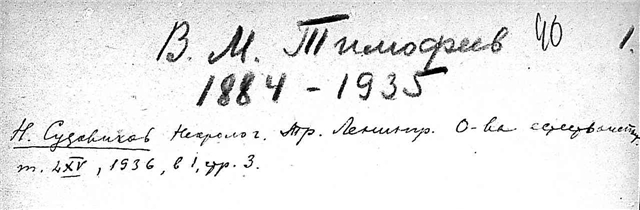 В. М. Тимофеев 40 1.
1884 - 1935
Н. Судовиков Некролог. Тр. Ленингр. О-ва естествоиспыт.
т. LXV, 1936, в 1, стр. 3.